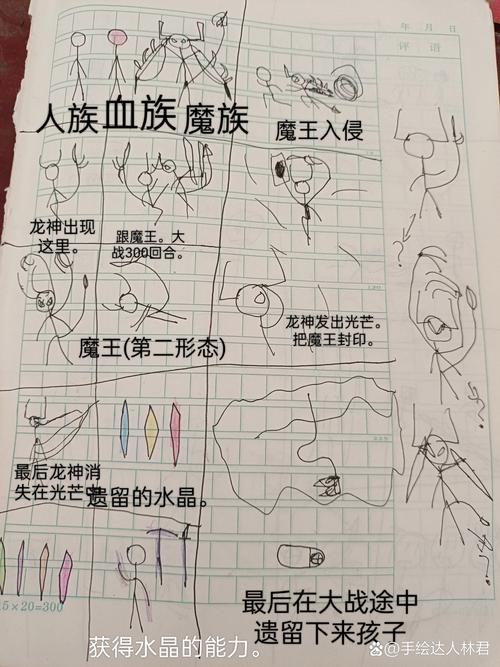 年 月 日
评 语
人族 血族 魔族
魔王入侵
龙神出现
这里。
跟魔王。大
战300回合。
魔王(第二形态)
龙神发出光芒。
把魔王封印。
最后龙神消
失在光芒中
遗留的水晶。
15×20=300
获得水晶的能力。
最后在大战途中
遗留下来孩子
@手绘达人林君